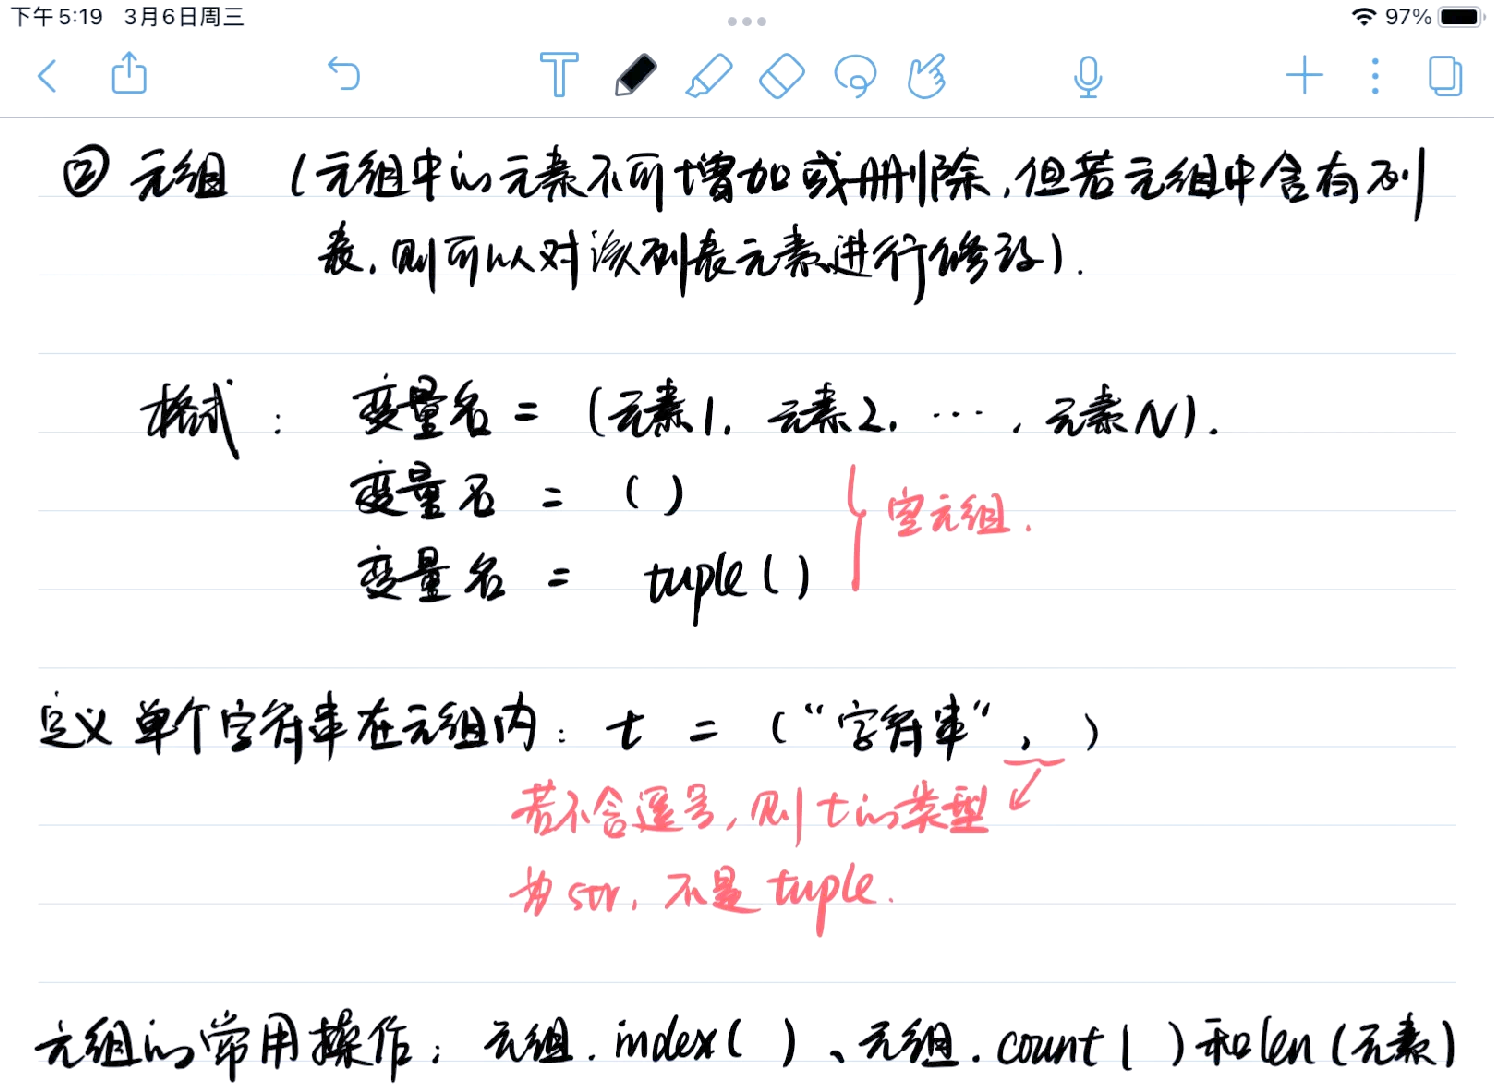 下午5:19 3月6日周三 97%
② 元组 (元组中的元素不可增加或删除,但若元组中含有列
表,则可以对该列表元素进行修改).
格式: 变量名 = (元素1, 元素2, ···, 元素N).
变量名 = ()
空元组.
变量名 = tuple()
定义单个字符串在元组内: t = (“字符串”, )
若不含逗号,则t的类型
为str,不是tuple.
元组的常用操作: 元组.index( )、元组.count( )和len(元素)